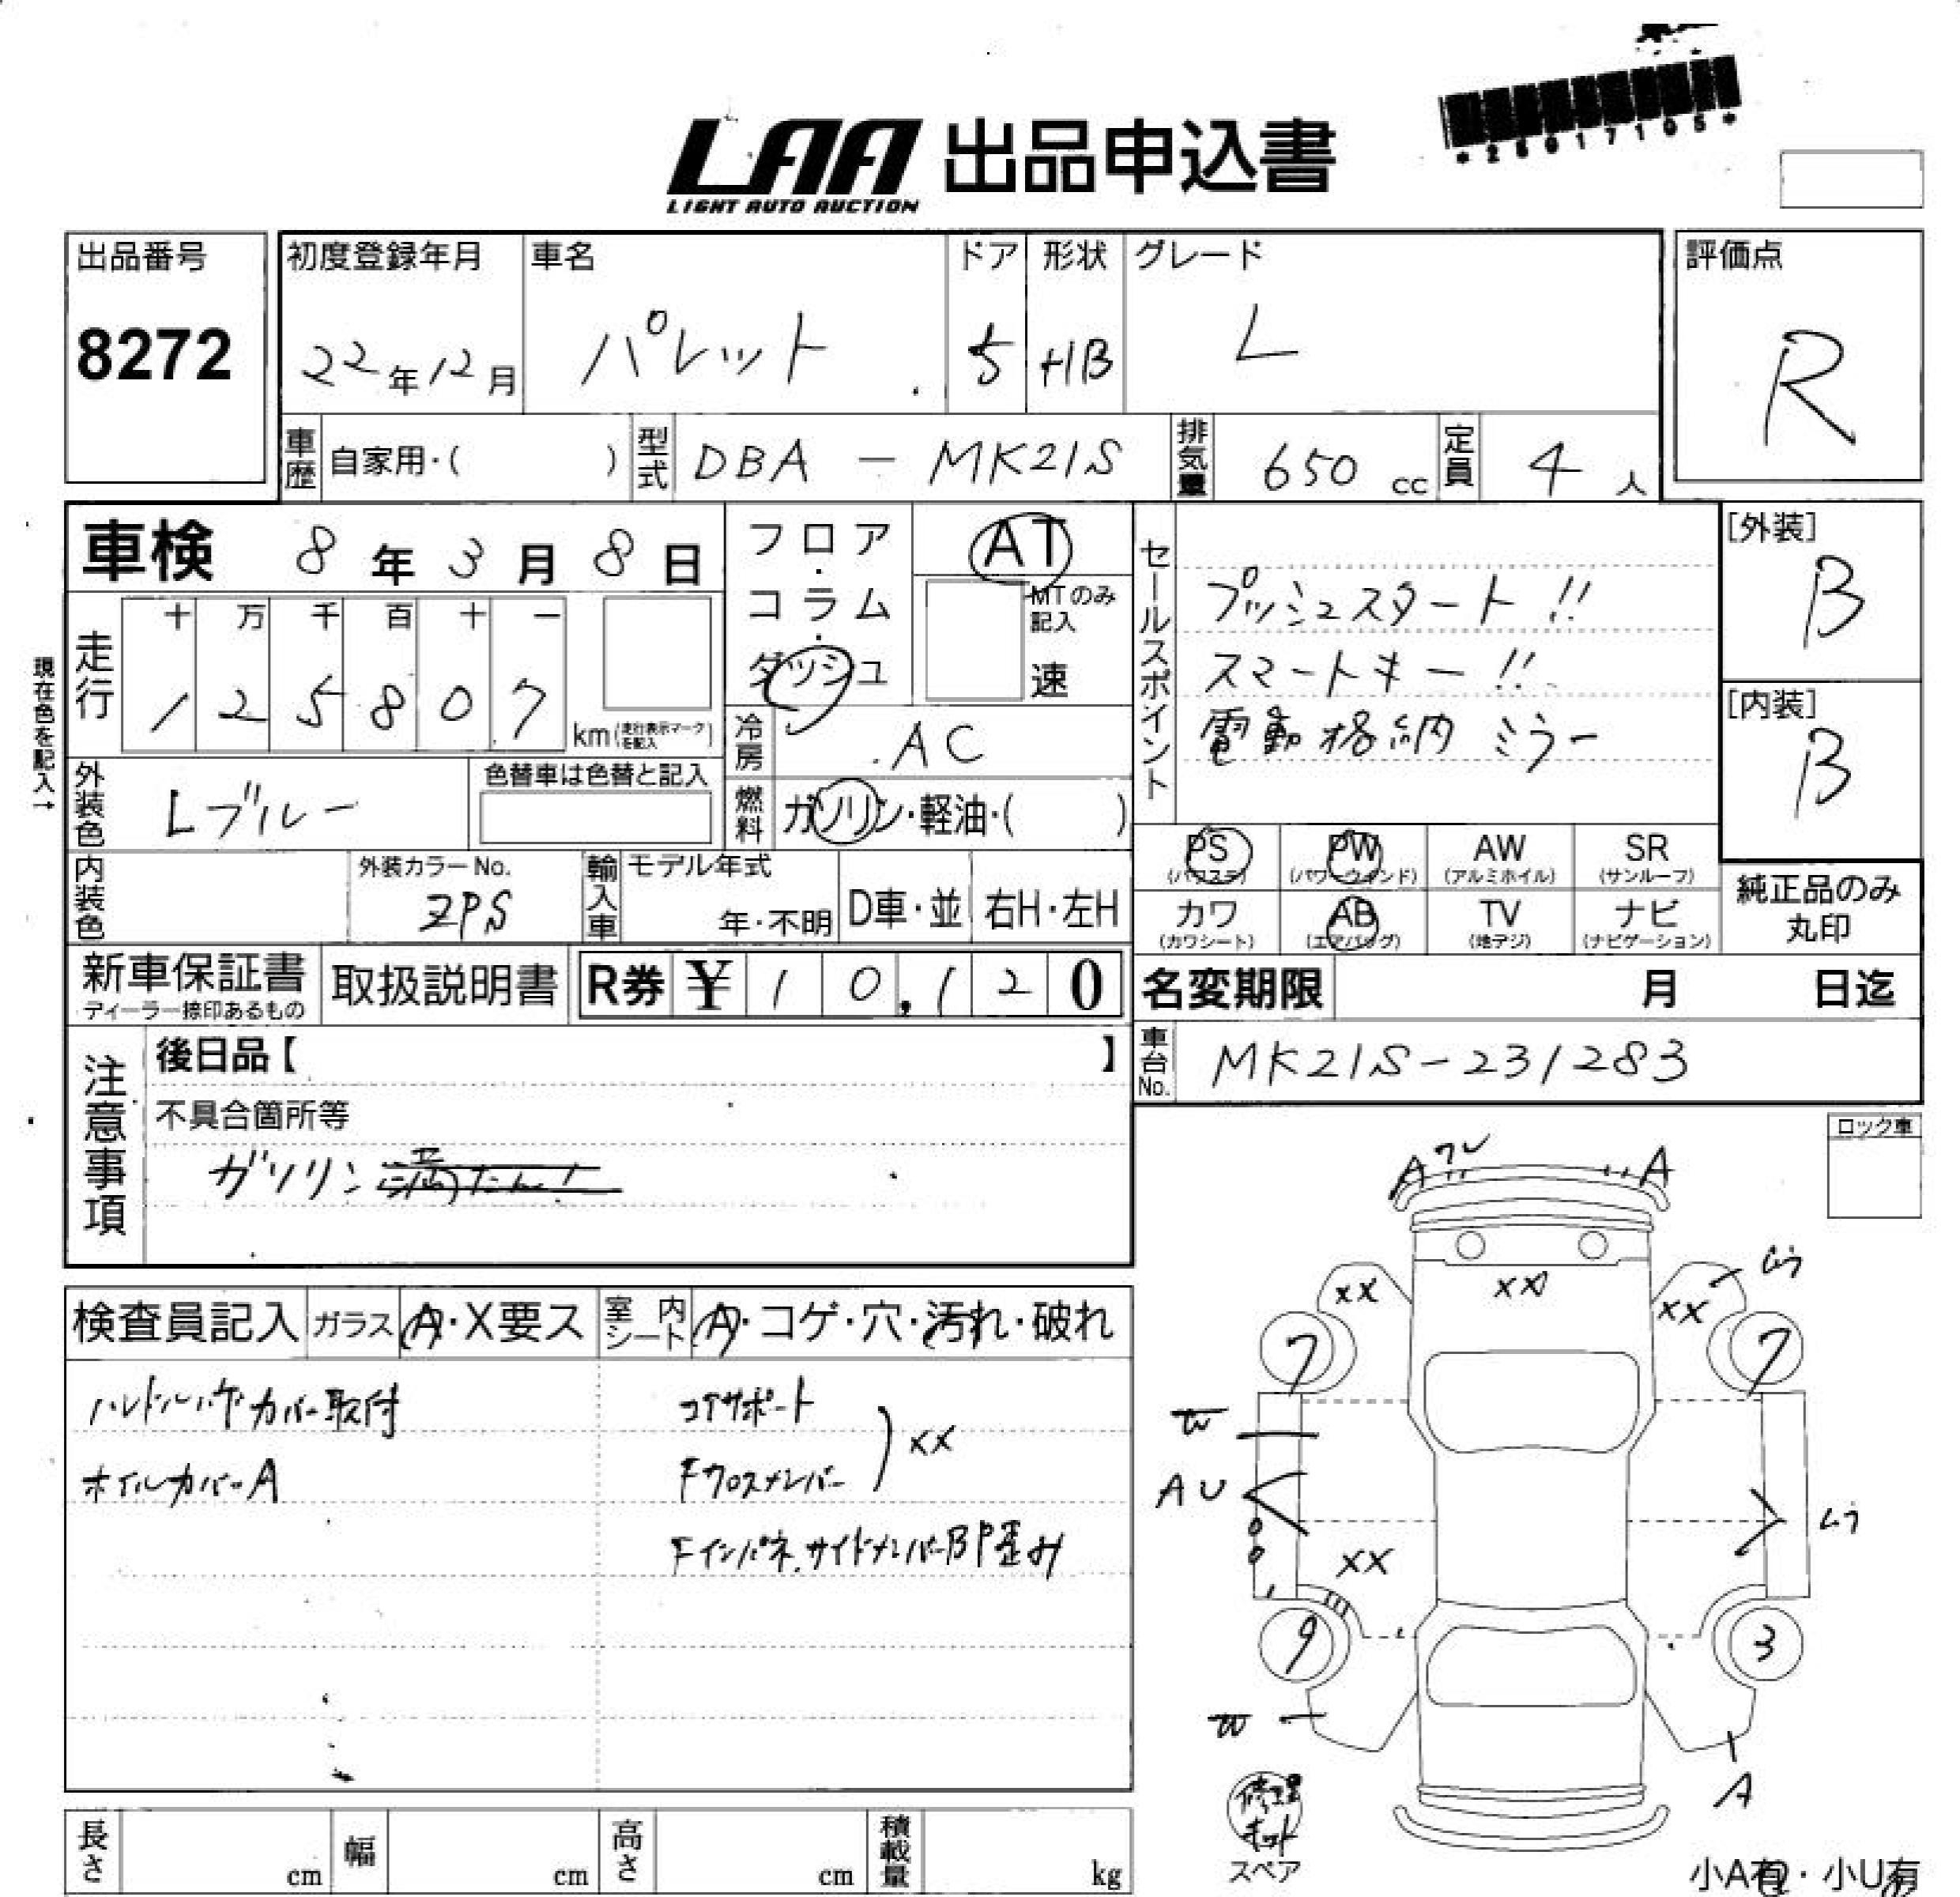 *25017105*
LAA 出品申込書
LIGHT AUTO AUCTION
出品番号
8272
初度登録年月
22年12月
車名
パレット
ドア
5
形状
HB
グレード
L
評価点
R
車歴
自家用・( )
型式
DBA - MK21S
排気量
650 cc
定員
4 人
車検 8年3月8日
フロア・コラム・ダッシュ
AT
MTのみ記入
速
セールスポイント
プッシュスタート!!
スマートキー!!
電動格納ミラー
[外装]
B
[内装]
B
現在色を記入→
走行
十 万 千 百 十 一
1 2 5 8 0 7
km(走行表示マークを記入)
冷房
AC
外装色
Lブルー
色替車は色替と記入
燃料
ガソリン・軽油・( )
PS (パワステ)
PW (パワーウインド)
AW (アルミホイル)
SR (サンルーフ)
カワ (カワシート)
AB (エアバッグ)
TV (地デジ)
ナビ (ナビゲーション)
純正品のみ丸印
内装色
外装カラーNo.
ZPS
輸入車
モデル年式
年・不明
D車・並
右H・左H
新車保証書
ディーラー捺印あるもの
取扱説明書
R券 ¥ 10,120
名変期限 月 日迄
注意事項
後日品【 】
車台No.
MK21S-231283
不具合箇所等
ガソリン満たん!
ロック車
検査員記入
ガラス
A・X要ス
室内シート
A・コゲ・穴・汚れ・破れ
カバー取付
ホイルカバーA
コアサポート
Fクロスメンバー
XX
Fインパネ.サイドメンバーBP歪み
A ワレ A
XX XX XX ムラ
7 7
W
AU ムラ
XX
9 3
W
A
修理キット
スペア
長さ cm
幅 cm
高さ cm
積載量 kg
小A有・小U有